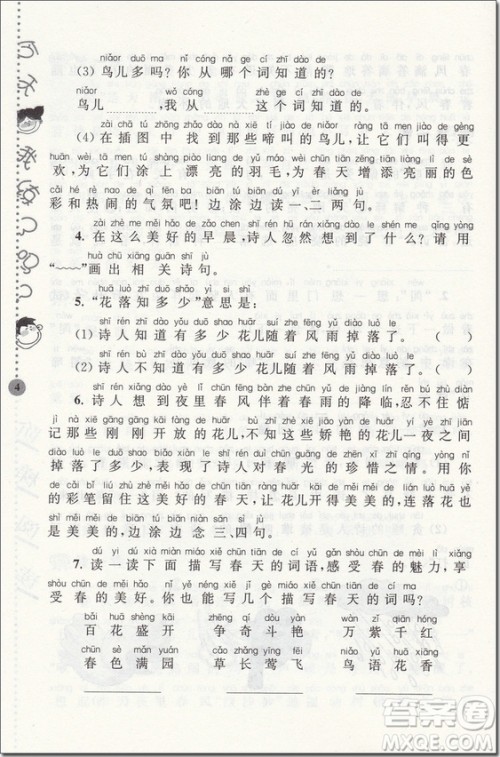 niǎor duō ma nǐ cóng nǎ ge cí zhī dào de
(3) 鸟儿多吗？你从哪个词知道的？
niǎor wǒ cóng zhè ge cí zhī dào de
鸟儿，我从这个词知道的。
zài chā tú zhōng zhǎo dào nà xiē tí jiào de niǎor ràng tā men jiào de gèng
(4) 在插图中找到那些啼叫的鸟儿，让它们叫得更
huān wèi tā men tú shàng piào liang de yǔ máo wèi chūn tiān zēng tiān liàng lì de sè
欢，为它们涂上漂亮的羽毛，为春天增添亮丽的色
cǎi hé rè nao de qì fēn ba biān tú biān dú yī èr liǎng jù
彩和热闹的气氛吧！边涂边读一、二两句。
zài zhè me měi hǎo de zǎo chén shī rén hū rán xiǎng dào le shén me qǐng yòng
4. 在这么美好的早晨，诗人忽然想到了什么？请用
huà chū xiāng guān shī jù
“﹏﹏”画出相关诗句。
huā luò zhī duō shǎo yì si shì
5. “花落知多少”意思是：
shī rén zhī dào yǒu duō shǎo huār suí zhe fēng yǔ diào luò le
(1) 诗人知道有多少花儿随着风雨掉落了。（ ）
shī rén bù zhī dào yǒu duō shǎo huār suí zhe fēng yǔ diào luò le
(2) 诗人不知道有多少花儿随着风雨掉落了。（ ）
shī rén xiǎng dào yè lǐ chūn fēng bàn zhe chūn yǔ de jiàng lín rěn bu zhù diàn
6. 诗人想到夜里春风伴着春雨的降临，忍不住惦
jì nà xiē gāng gāng kāi fàng de huār bù zhī nà xiē jiāo yàn de huār yī yè zhī jiān
记那些刚刚开放的花儿，不知那些娇艳的花儿一夜之间
diào luò le duō shǎo biǎo xiàn le shī rén duì chūn guāng de zhēn xī zhī qíng yòng nǐ
掉落了多少，表现了诗人对春光的珍惜之情。用你
de cǎi bǐ liú zhù měi lì de chūn tiān ràng huār kāi de měi měi de lián luò huā yě
的彩笔留住美丽的春天，让花儿开得美美的，连落花也
shì měi měi de biān tú biān niàn sān sì jù
是美美的，边涂边念三、四句。
dú yi dú xià miàn miáo xiě chūn tiān de cí yǔ gǎn shòu chūn de mèi lì xiǎng
7. 读一读下面描写春天的词语，感受春的魅力，享
shòu chūn de měi hǎo nǐ yě néng xiě jǐ gè miáo xiě chūn tiān de cí ma
受春的美好。你也能写几个描写春天的词吗？
bǎi huā shèng kāi zhēng qí dòu yàn wàn zǐ qiān hóng
百花盛开 争奇斗艳 万紫千红
chūn sè mǎn yuán cǎo zhǎng yīng fēi niǎo yǔ huā xiāng
春色满园 草长莺飞 鸟语花香
4
答案圈
MXQE.COM